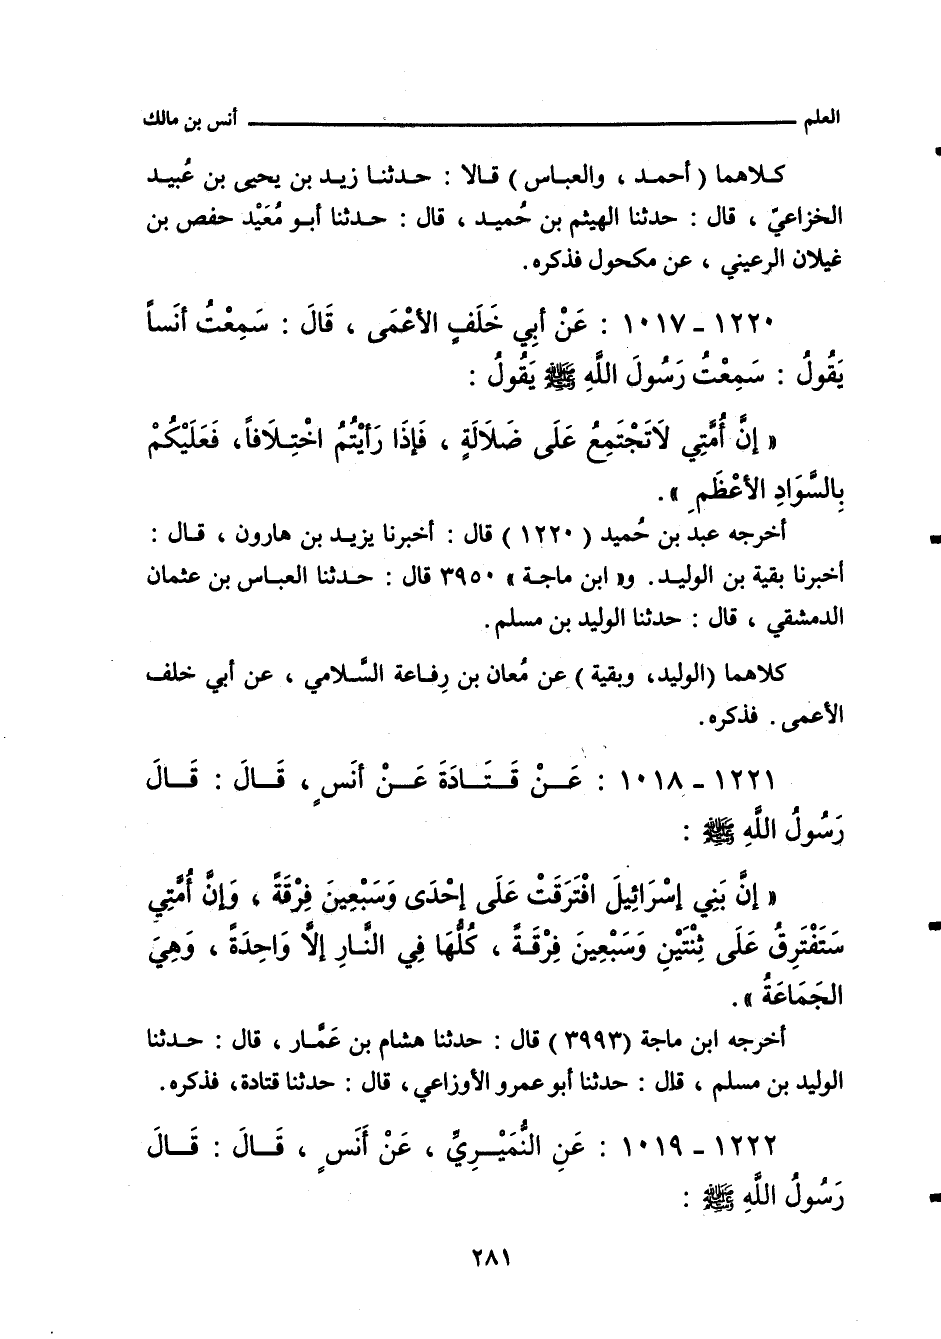 العلم ــــــــــــ أنس بن مالك
كلاهما ( أحمد ، والعباس ) قالا : حدثنا زيد بن يحيى بن عُبيد
الخزاعيّ ، قال : حدثنا الهيثم بن حُميد ، قال : حدثنا أبو مُعَيْد حفص بن
غيلان الرعيني ، عن مكحول فذكره .
١٢٢٠ ـ ١٠١٧ : عَنْ أبِي خَلَفٍ الأعْمَى ، قَالَ : سَمِعْتُ أنَساً
يَقُولُ : سَمِعْتُ رَسُولَ اللَّهِ ﷺ يَقُولُ :
« إنَّ أُمَّتِي لاَتَجْتَمِعُ عَلَى ضَلاَلَةٍ ، فَإذَا رَأيْتُمُ اخْتِلاَفاً ، فَعَلَيْكُمْ
بِالسَّوَادِ الأعْظَمِ » .
أخرجه عبد بن حُميد ( ١٢٢٠ ) قال : أخبرنا يزيد بن هارون ، قال :
أخبرنا بقية بن الوليد . و« ابن ماجة » ٣٩٥٠ قال : حدثنا العباس بن عثمان
الدمشقي ، قال : حدثنا الوليد بن مسلم .
كلاهما (الوليد، وبقية ) عن مُعان بن رِفاعة السَّلامي ، عن أبي خلف
الأعمى . فذكره .
١٢٢١ ـ ١٠١٨ : عَنْ قَتَادَةَ عَنْ أنَسٍ ، قَالَ : قَالَ
رَسُولُ اللَّهِ ﷺ :
« إنَّ بَنِي إسْرَائِيلَ افْتَرَقَتْ عَلَى إحْدَى وَسَبْعِينَ فِرْقَةً ، وَإنَّ أُمَّتِي
سَتَفْتَرِقُ عَلَى ثِنْتَيْنِ وَسَبْعِينَ فِرْقَةً ، كُلُّهَا فِي النَّارِ إلاَّ وَاحِدَةً ، وَهِيَ
الجَمَاعَةُ » .
أخرجه ابن ماجة (٣٩٩٣) قال : حدثنا هشام بن عَمَّار ، قال : حدثنا
الوليد بن مسلم ، قال : حدثنا أبو عمرو الأوزاعي ، قال : حدثنا قتادة ، فذكره .
١٢٢٢ ـ ١٠١٩ : عَنِ النُّمَيْرِيِّ ، عَنْ أَنَسٍ ، قَالَ : قَالَ
رَسُولُ اللَّهِ ﷺ :
٢٨١